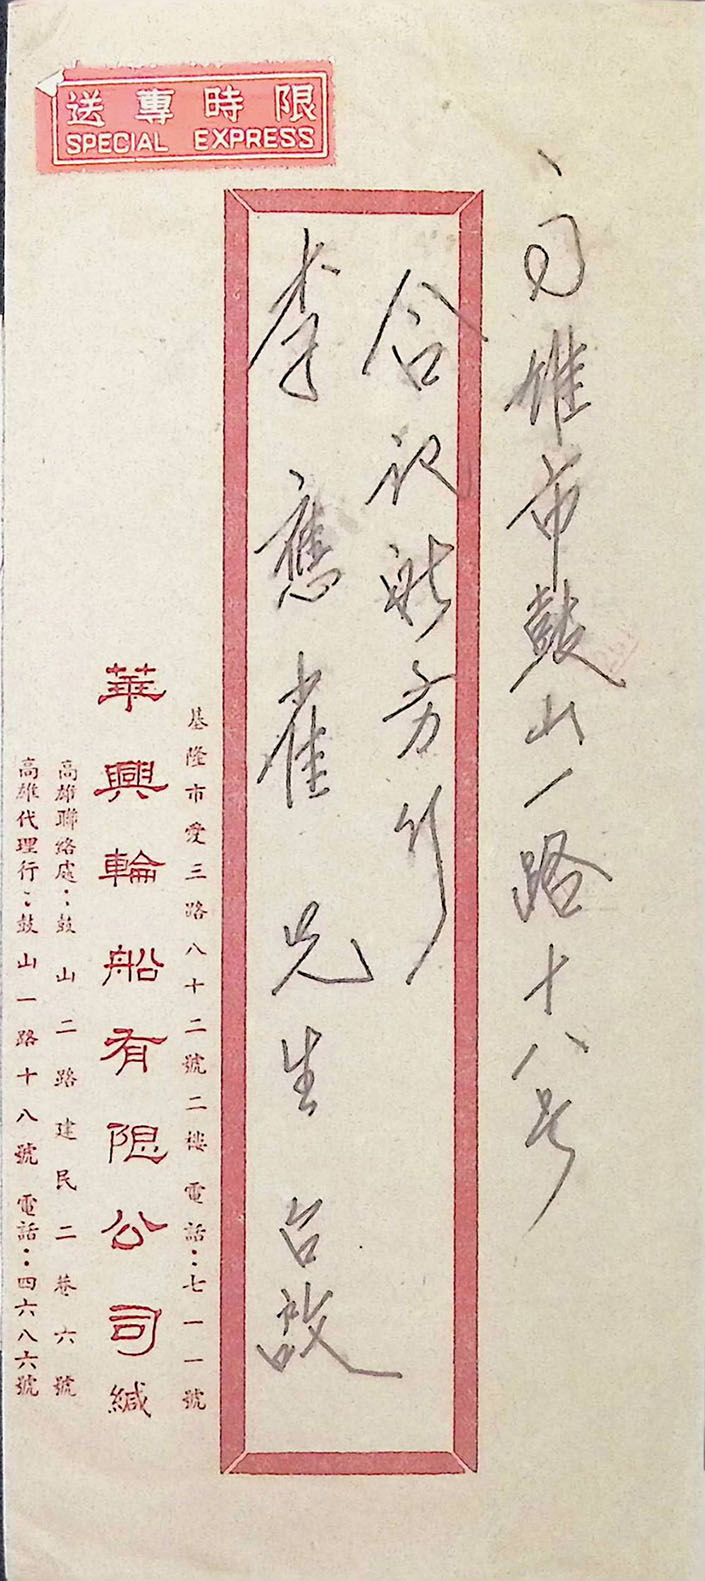 限時專送
SPECIAL EXPRESS
高雄市鼓山一路十八号
合記船务行
李應雀先生 台啟
基隆市愛三路八十二號二樓電話：七一一號
華興輪船有限公司緘
高雄聯絡處：鼓山二路建民二巷六號
高雄代理行：鼓山一路十八號 電話：四六八六號